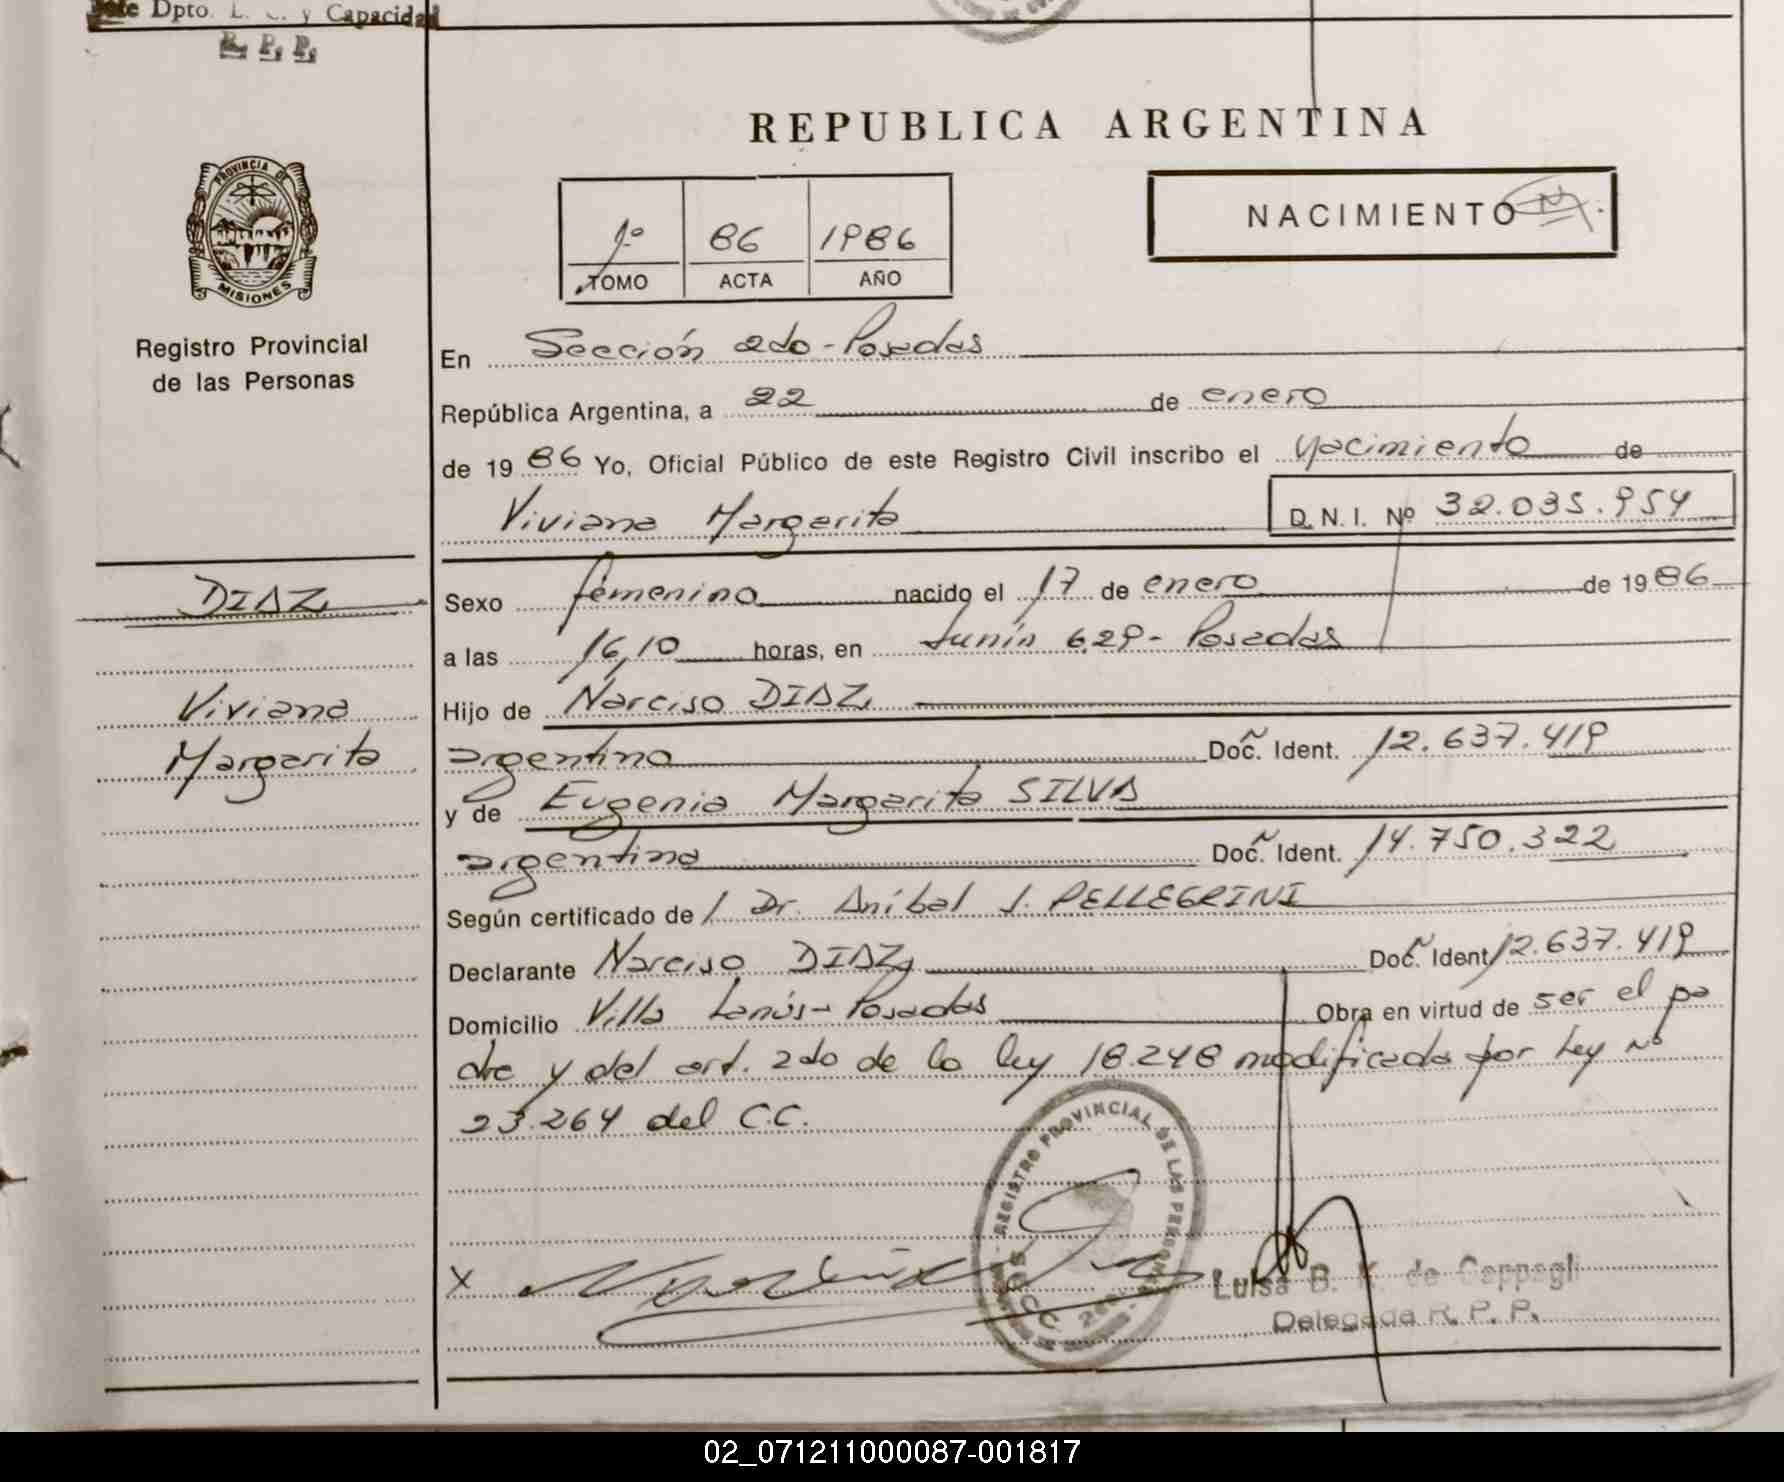 Jefe Dpto. E. C. y Capacidad
R. P. P.
REPUBLICA ARGENTINA
PROVINCIA DE
MISIONES
Registro Provincial
de las Personas
1º 86 1986
TOMO ACTA AÑO
NACIMIENTO
En Sección 2do - Posadas
República Argentina, a 22 de enero
de 1986 Yo, Oficial Público de este Registro Civil inscribo el Nacimiento de
Viviana Margarita D. N. I. Nº 32.035.954
DIAZ
Viviana
Margarita
Sexo femenino nacido el 17 de enero de 1986
a las 16,10 horas, en Junín 629 - Posadas
Hijo de Narciso DIAZ
argentino Doc. Ident. 12.637.419
y de Eugenia Margarita SILVA
argentina Doc. Ident. 14.750.322
Según certificado de / Dr. Aníbal J. PELLEGRINI
Declarante Narciso DIAZ Doc. Ident 12.637.419
Domicilio Villa Lanús - Posadas Obra en virtud de ser el pa
dre y del art. 2do de la ley 18.248 modificada por Ley Nº
23.264 del C.C.
REGISTRO PROVINCIAL DE LAS PERSONAS
X
Luisa B. K. de Cappagli
Delegada R. P. P.
02_071211000087-001817